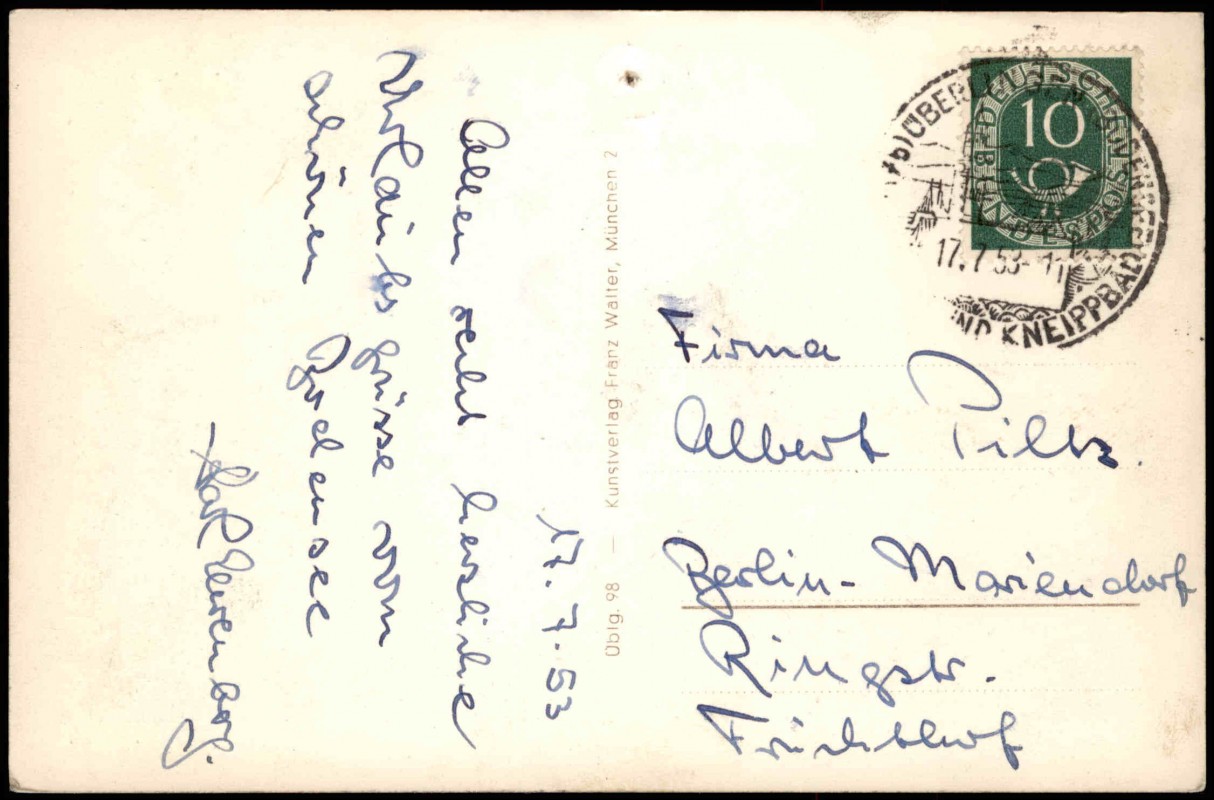 17.7.53
Allen recht herzliche
Urlaubsgrüsse vom
schönen Bodensee
Üblg. 98 — Kunstverlag Franz Walter, München 2
DEUTSCHE BUNDESPOST
10
ÜBERLINGEN
17.7.53-11
UND KNEIPPBAD
Firma
Albert Piltz.
Berlin-Mariendorf
Ringstr.